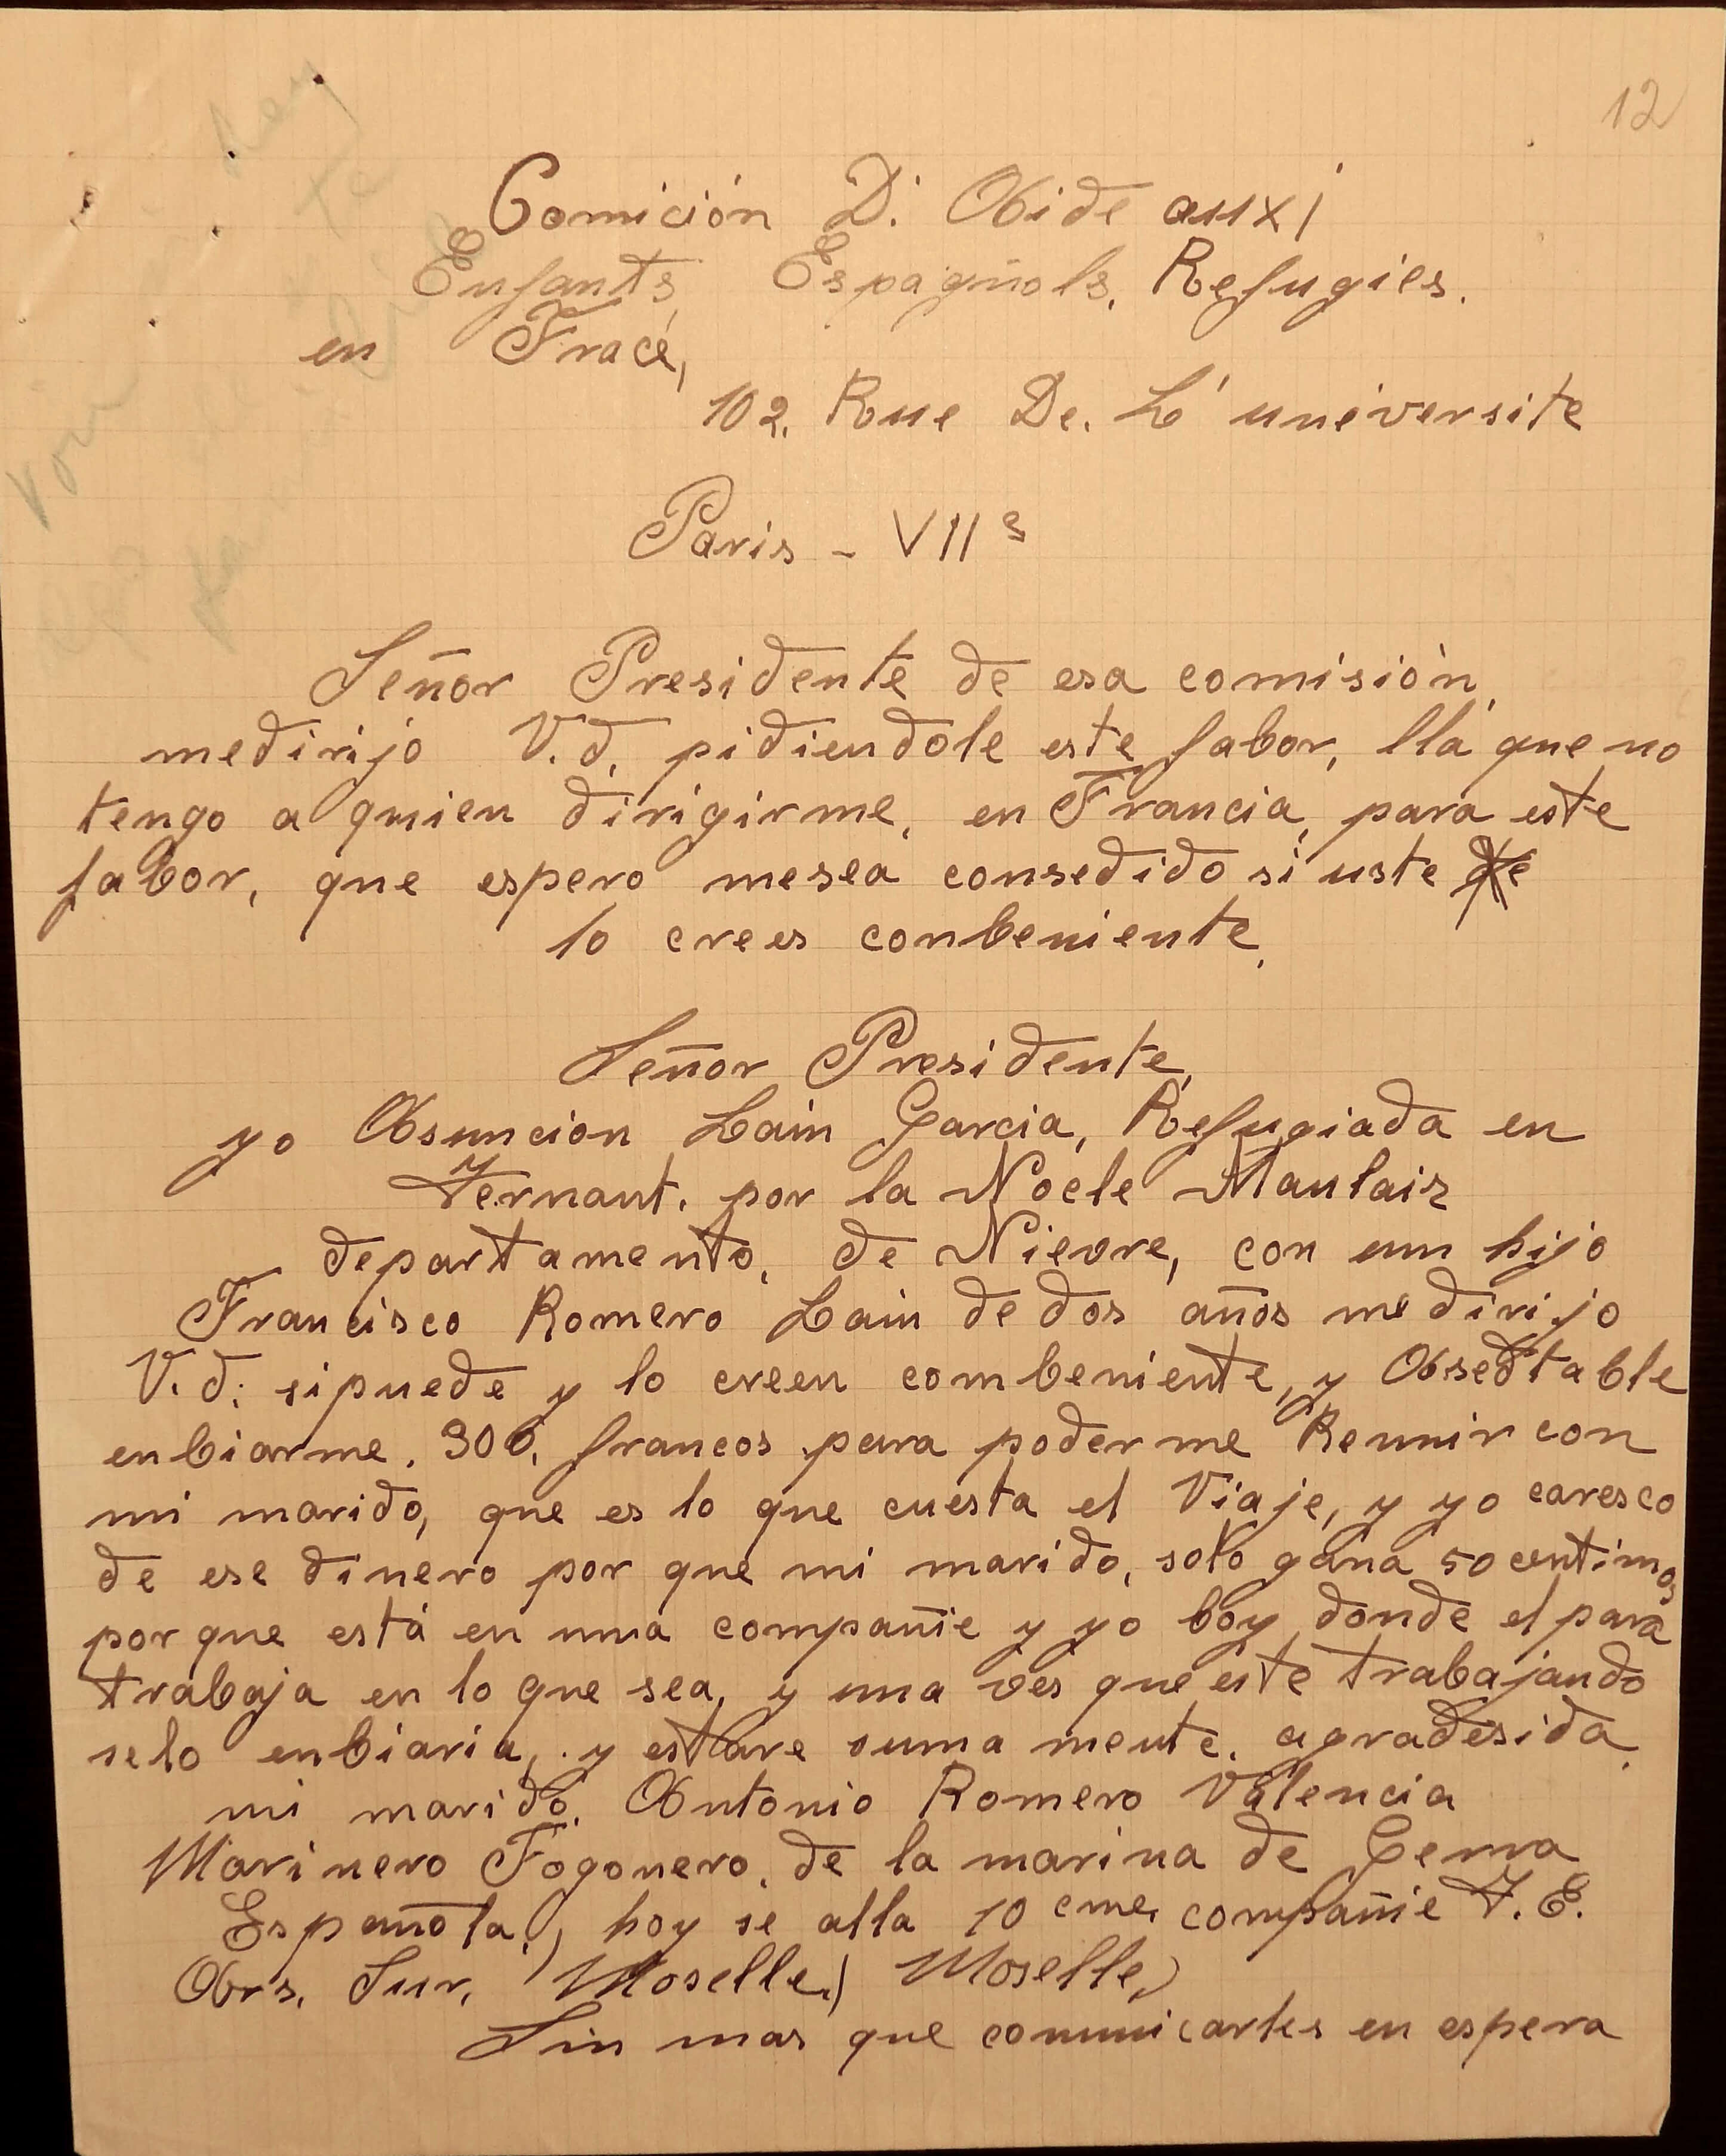 12
Comición D. Aide aux
Enfants, Españols, Refugies.
en Frace,
102, Rue De. L' université
Paris - VII e
Señor Presidente de esa comisión,
medirijo V.d. pidiendole este fabor, lla que no
tengo a quien dirigirme, en Francia, para este
fabor, que espero mesea consedido si uste
lo crees conbeniente,
Señor Presidente,
yo Asuncion Lain Garcia, Refugiada en
Ternant, por la Nocle Maulaix
departamento, de Nievre, con um hijo
Francisco Romero Lain de dos años me dirijo
V.d. sipuede y lo creen combeniente, y Asedtable
enbiarme, 300, francos para poderme Reunir con
mi marido, que es lo que cuesta el Viaje, y yo caresco
de ese dinero por que mi marido, solo gana 50 centimos
por que está en una compañie y yo boy donde el para
trabaja en lo que sea, y una ves que este trabajando
selo enbiaria, y estare suma mente, agradesida,
mi marido, Antonio Romero Valencia
Marinero Fogonero, de la marina de Gerra
Española, hoy se alla 10 eme, compañie T. E.
Ars, Sur, Moselle) Moselle)
Sin mas que comunicarles en espera